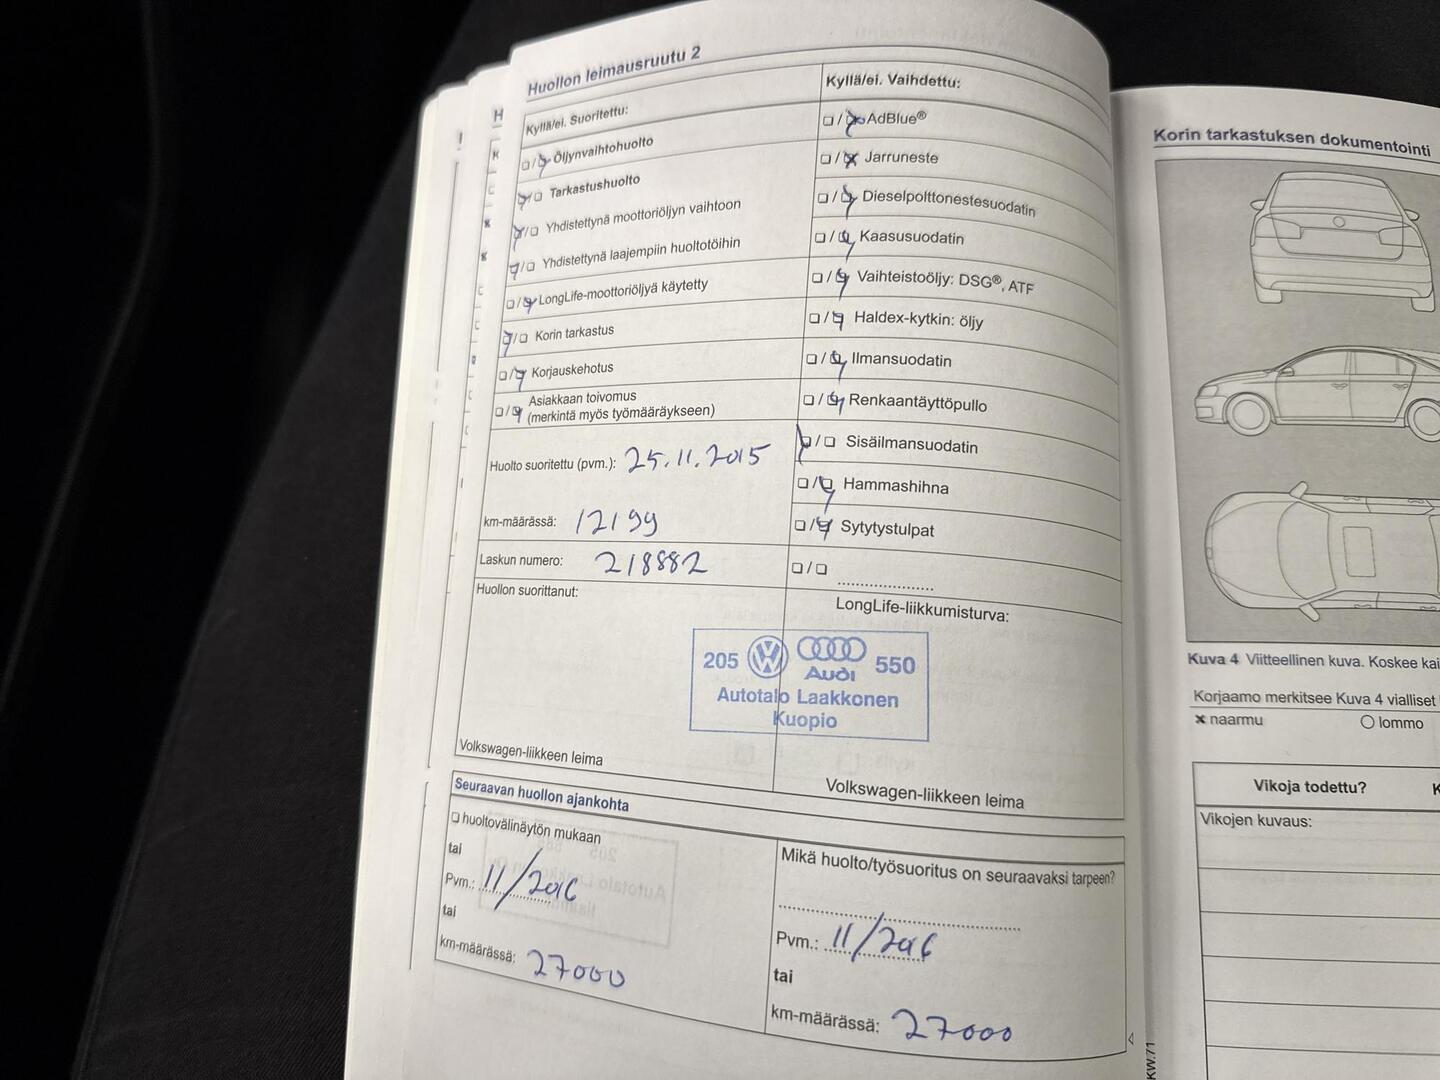 Huollon leimausruutu 2
Kyllä/ei. Suoritettu:
Öljynvaihtohuolto
Tarkastushuolto
Yhdistettynä moottoriöljyn vaihtoon
Yhdistettynä laajempiin huoltotöihin
LongLife-moottoriöljyä käytetty
Korin tarkastus
Korjauskehotus
Asiakkaan toivomus
(merkintä myös työmääräykseen)
Huolto suoritettu (pvm.): 25.11.2015
km-määrässä: 12199
Laskun numero: 218882
Huollon suorittanut:
Volkswagen-liikkeen leima
Kyllä/ei. Vaihdettu:
AdBlue®
Jarruneste
Dieselpolttonestesuodatin
Kaasusuodatin
Vaihteistoöljy: DSG®, ATF
Haldex-kytkin: öljy
Ilmansuodatin
Renkaantäyttöpullo
Sisäilmansuodatin
Hammashihna
Sytytystulpat
LongLife-liikkumisturva:
205 VW Audi 550
Autotalo Laakkonen
Kuopio
Volkswagen-liikkeen leima
Seuraavan huollon ajankohta
huoltovälinäytön mukaan
tai
Pvm.: 11/2016
tai
km-määrässä: 27000
Mikä huolto/työsuoritus on seuraavaksi tarpeen?
Pvm.: 11/2016
tai
km-määrässä: 27000
KW.71
Korin tarkastuksen dokumentointi
Kuva 4 Viitteellinen kuva. Koskee kai
Korjaamo merkitsee Kuva 4 vialliset
naarmu lommo
Vikoja todettu? K
Vikojen kuvaus: